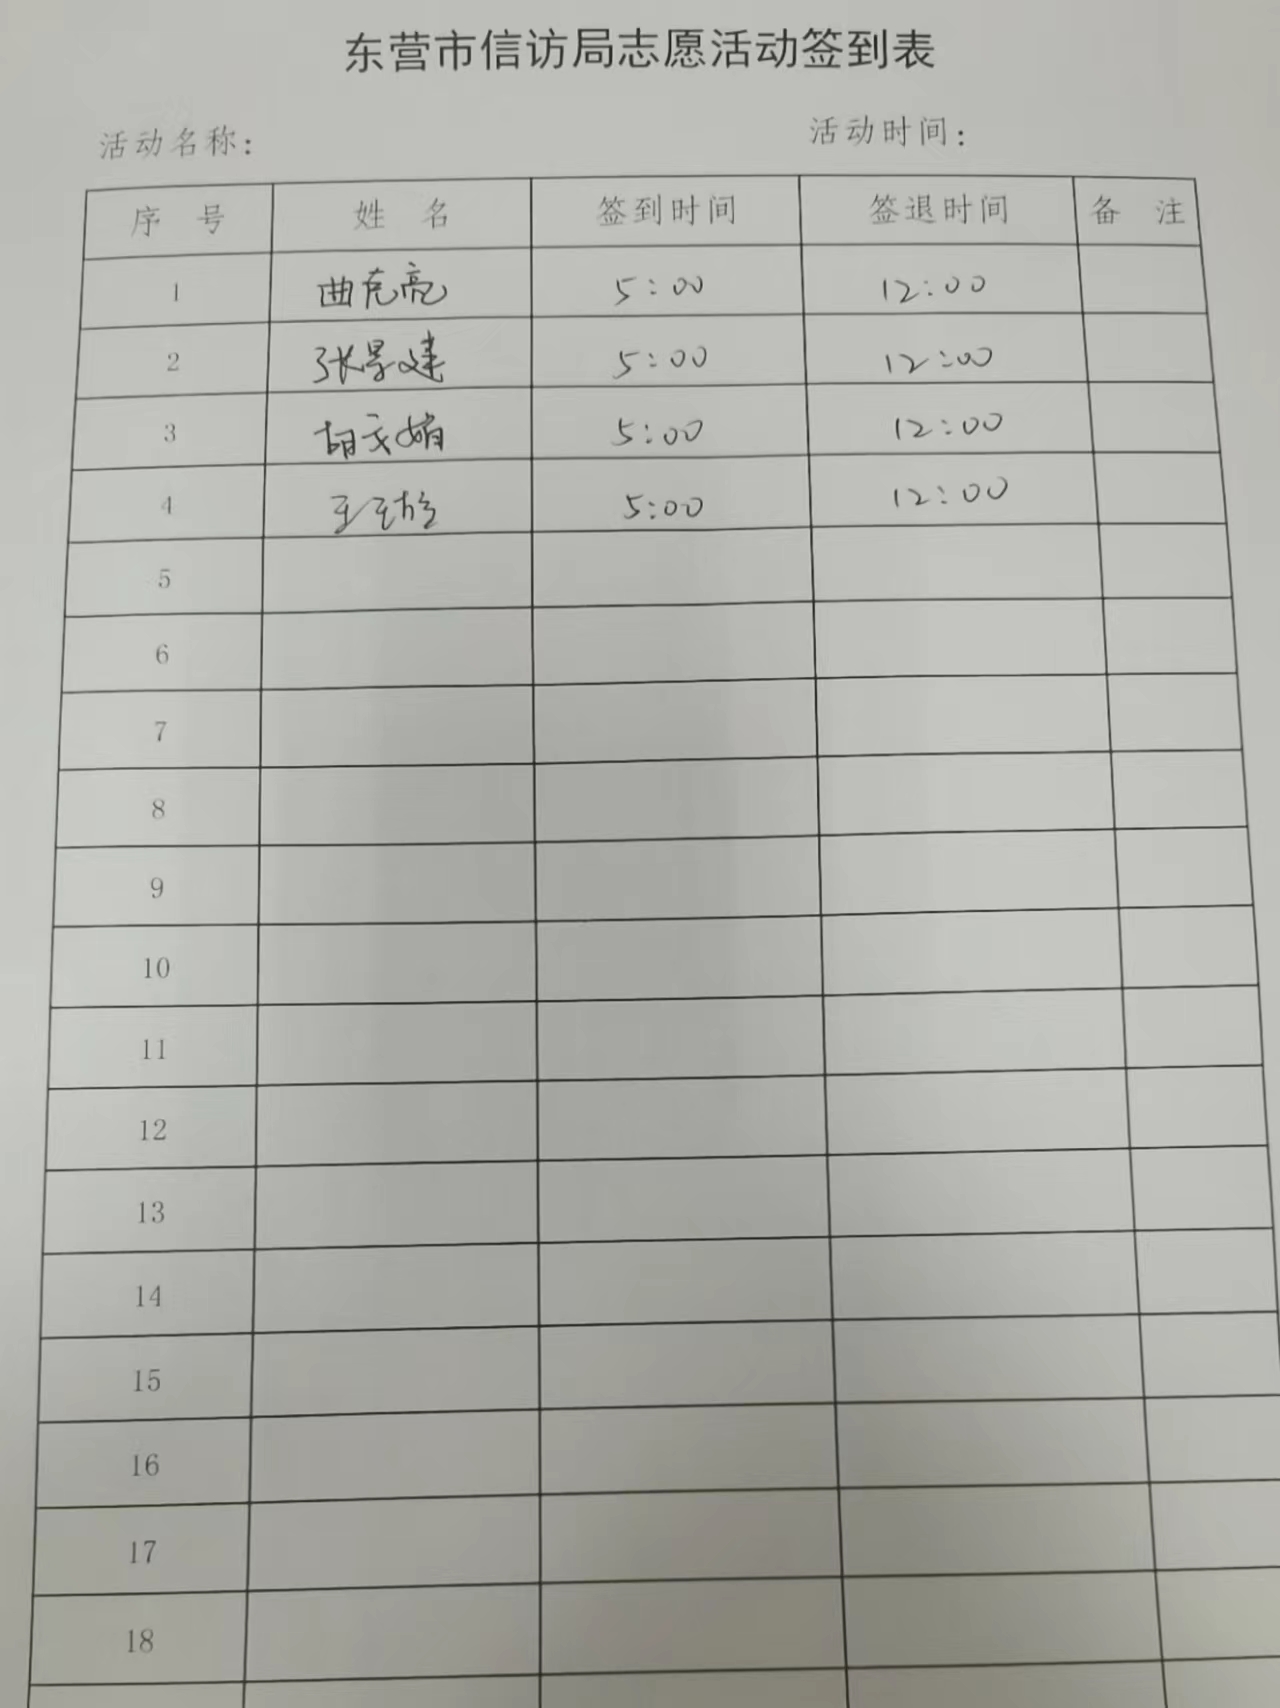 东营市信访局志愿活动签到表
活动名称: 活动时间:
序 号 姓 名 签到时间 签退时间 备 注
1 曲克亮 5:00 12:00
2 张景建 5:00 12:00
3 胡文娟 5:00 12:00
4 王 5:00 12:00
5
6
7
8
9
10
11
12
13
14
15
16
17
18